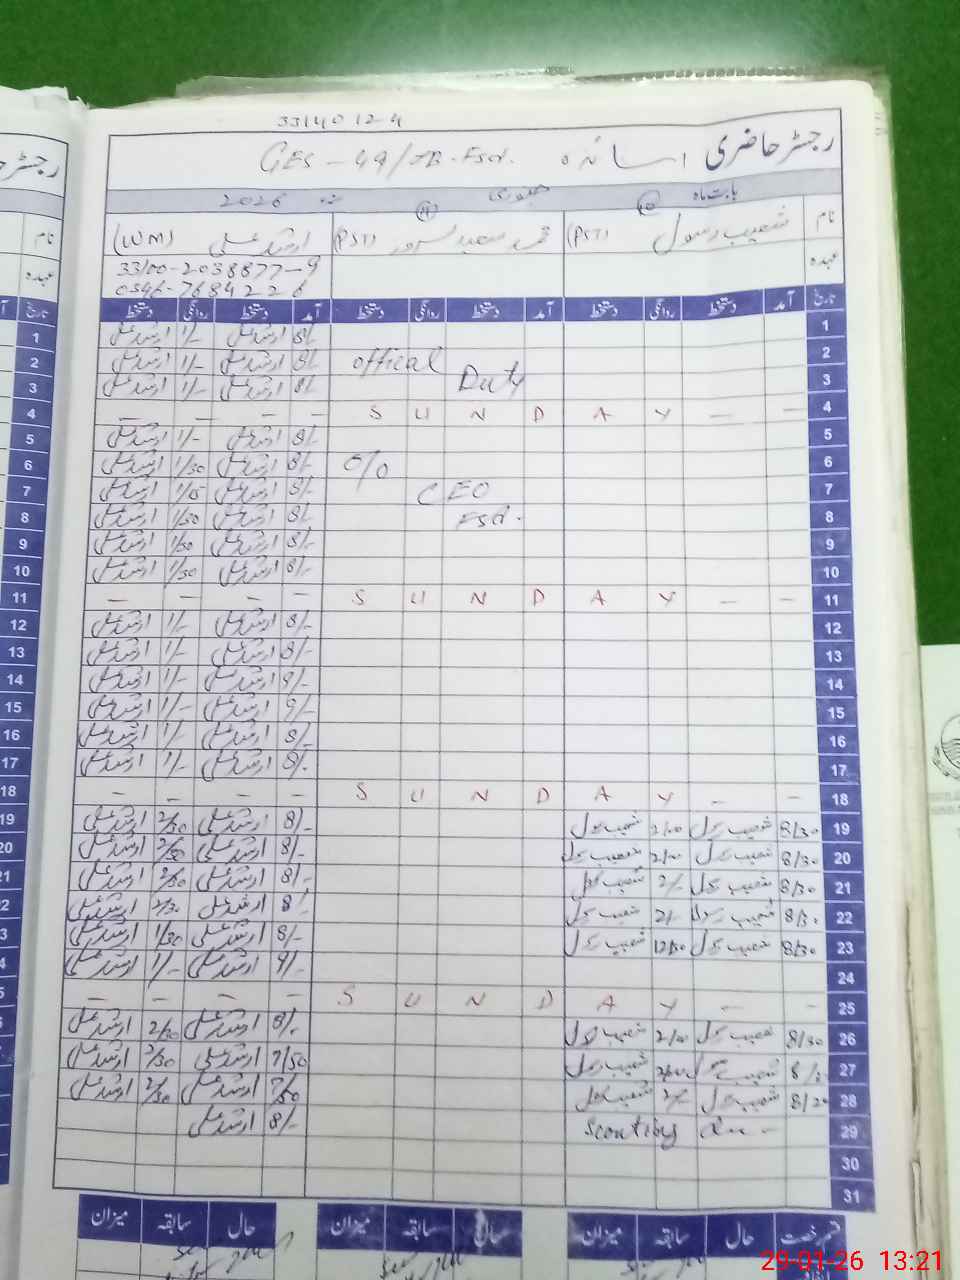 33140124
رجسٹر حاضری اساتذہ GES - 49/JB - Fsd.
بابت ماہ جنوری 2026
نام شعیب رسول (PST) محمد سعید سرور (PST) ارشد علی (WM)
عہدہ 33100-2038877-9
0346-7684226
تاریخ آمد دستخط روانگی دستخط آمد دستخط روانگی دستخط آمد دستخط روانگی دستخط تاریخ
1 ارشد علی 1/- ارشد علی 8/- 1
2 ارشد علی 1/- ارشد علی 8/- offical 2
3 ارشد علی 1/- ارشد علی 8/- Duty 3
4 — — — — S U N D A Y — — 4
5 ارشد علی 1/- ارشد علی 8/- 5
6 ارشد علی 1/30 ارشد علی 8/- O/o 6
7 ارشد علی ارشد علی 8/- CEO 7
8 ارشد علی 1/30 ارشد علی 8/- Fsd. 8
9 ارشد علی 1/30 ارشد علی 8/- 9
10 ارشد علی 1/30 ارشد علی 8/- 10
11 — — — — S U N D A Y — — 11
12 ارشد علی 1/- ارشد علی 8/- 12
13 ارشد علی 1/- ارشد علی 8/- 13
14 ارشد علی 1/- ارشد علی 14
15 ارشد علی 1/- ارشد علی 15
16 ارشد علی 1/- ارشد علی 8/- 16
17 ارشد علی 1/- ارشد علی 8/- 17
18 — — — — S U N D A Y — — 18
19 ارشد علی 2/30 ارشد علی 8/- شعیب رسول 2/00 شعیب رسول 8/30 19
20 ارشد علی 2/30 ارشد علی 8/- شعیب رسول 2/00 شعیب رسول 8/30 20
21 ارشد علی 2/30 ارشد علی 8/- شعیب رسول 2/- شعیب رسول 8/30 21
22 ارشد علی 2/30 ارشد علی 8/- شعیب رسول 2/- شعیب رسول 8/30 22
23 ارشد علی 1/30 ارشد علی 8/- شعیب رسول 12/30 شعیب رسول 8/30 23
24 ارشد علی 1/- ارشد علی 24
25 — — — — S U N D A Y — — 25
26 ارشد علی 2/30 ارشد علی 8/- شعیب رسول 2/00 شعیب رسول 8/30 26
ارشد علی 2/30 ارشد علی 7/50 شعیب رسول 2/00 شعیب رسول 27
ارشد علی 2/30 ارشد علی 7/50 شعیب رسول 2/- شعیب رسول 8/20 28
ارشد علی 8/- Scouting 29
30
31
رخصت حال سابقہ میزان حال سابقہ میزان حال سابقہ میزان
29-01-26 13:21